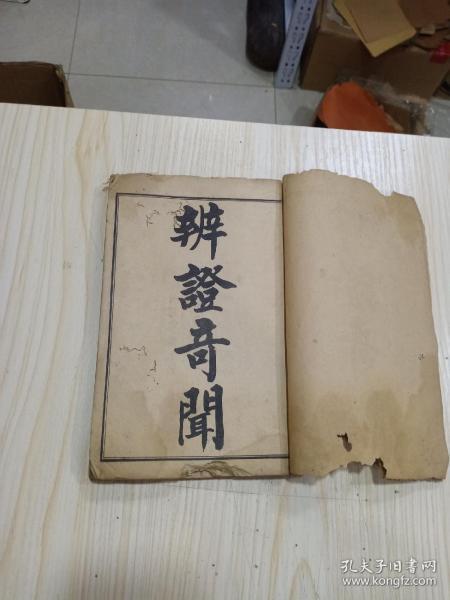 辨證奇聞
孔夫子旧书网
www.kongfz.com